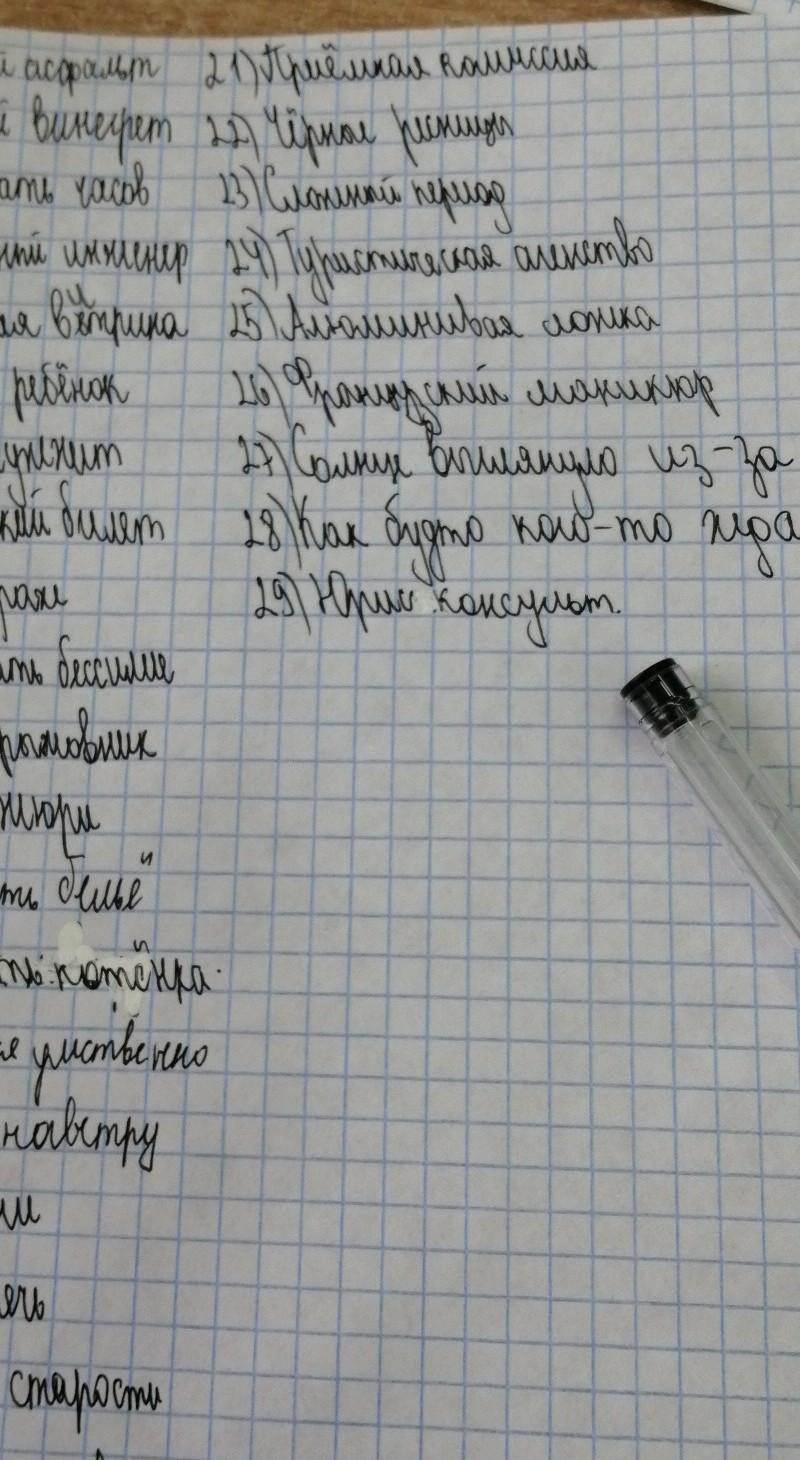 й асфальт
й винегрет
ать часов
ный инженер
ая витрина
ребёнок
унжит
кий билет
раж
ть бессилие
рыжовник
жюри
ть бельё
ть котёнка
ся умственно
навстру
ми
ячь
старости
21) Приёмная комиссия
22) Чёрные ресницы
23) Сложный период
24) Туристическая агенство
25) Алюминивая ложка
26) Французский маникюр
27) Солнце выглянуло из-за
28) Как будто кого-то жда
29) Юрис консульт.